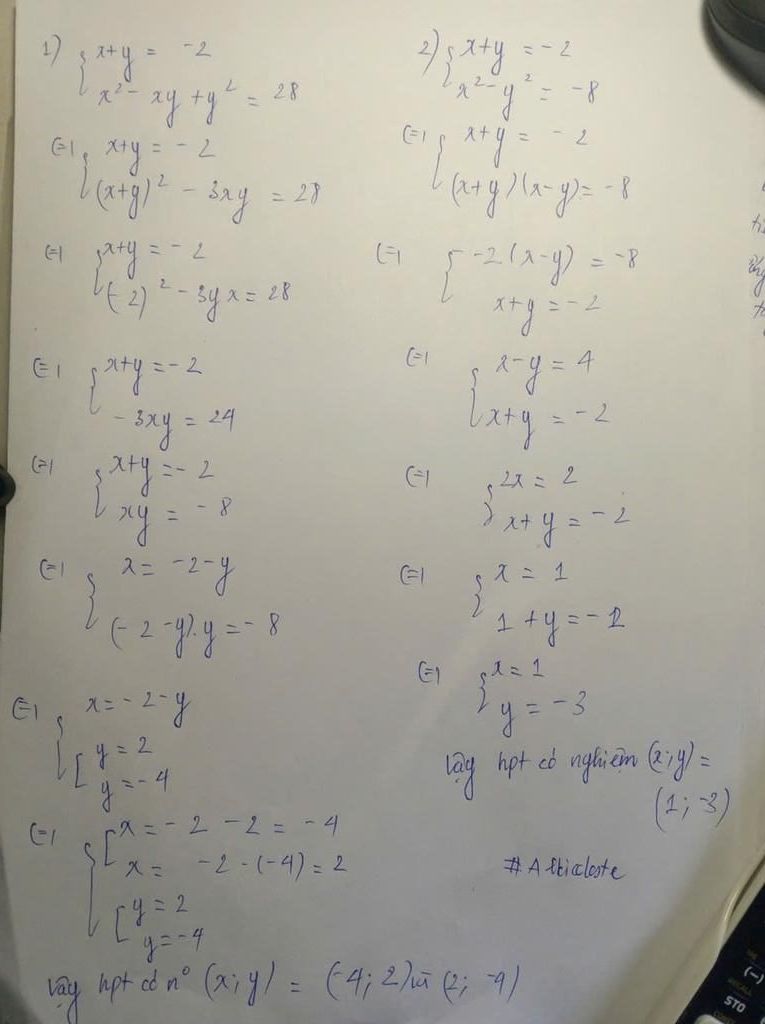 1) { x+y = -2
x² - xy + y² = 28
(=) { x+y = -2
(x+y)² - 3xy = 28
(=) { x+y = -2
(-2)² - 3yx = 28
(=) { x+y = -2
-3xy = 24
(=) { x+y = -2
xy = -8
(=) { x = -2-y
(-2-y).y = -8
(=) { x = -2-y
[ y = 2
y = -4
(=) { [ x = -2 -2 = -4
x = -2 -(-4) = 2
[ y = 2
y = -4
Vậy hpt có n° (x;y) = (-4; 2) và (2; -4)
2) { x+y = -2
x² - y² = -8
(=) { x+y = -2
(x+y)(x-y) = -8
(=) { -2(x-y) = -8
x+y = -2
(=) { x-y = 4
x+y = -2
(=) { 2x = 2
x+y = -2
(=) { x = 1
1 + y = -2
(=) { x = 1
y = -3
Vậy hpt có nghiệm (x;y) =
(1; -3)
(-)
STO